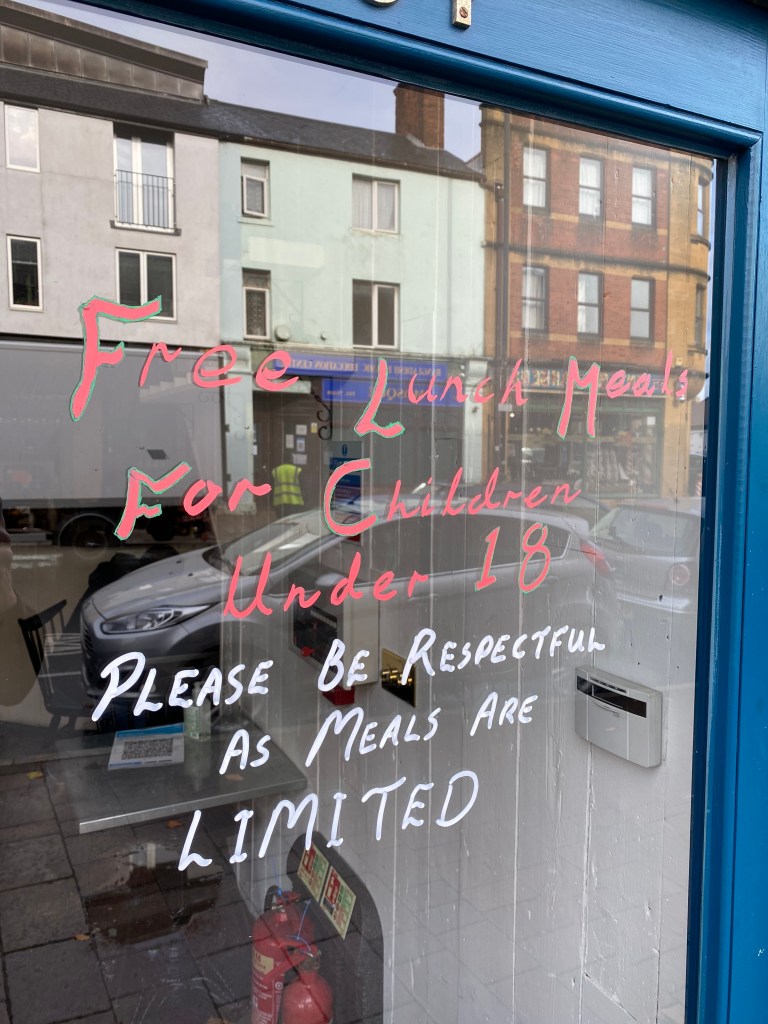 Free Lunch Meals
For Children
Under 18
PLEASE BE RESPECTFUL
AS MEALS ARE
LIMITED